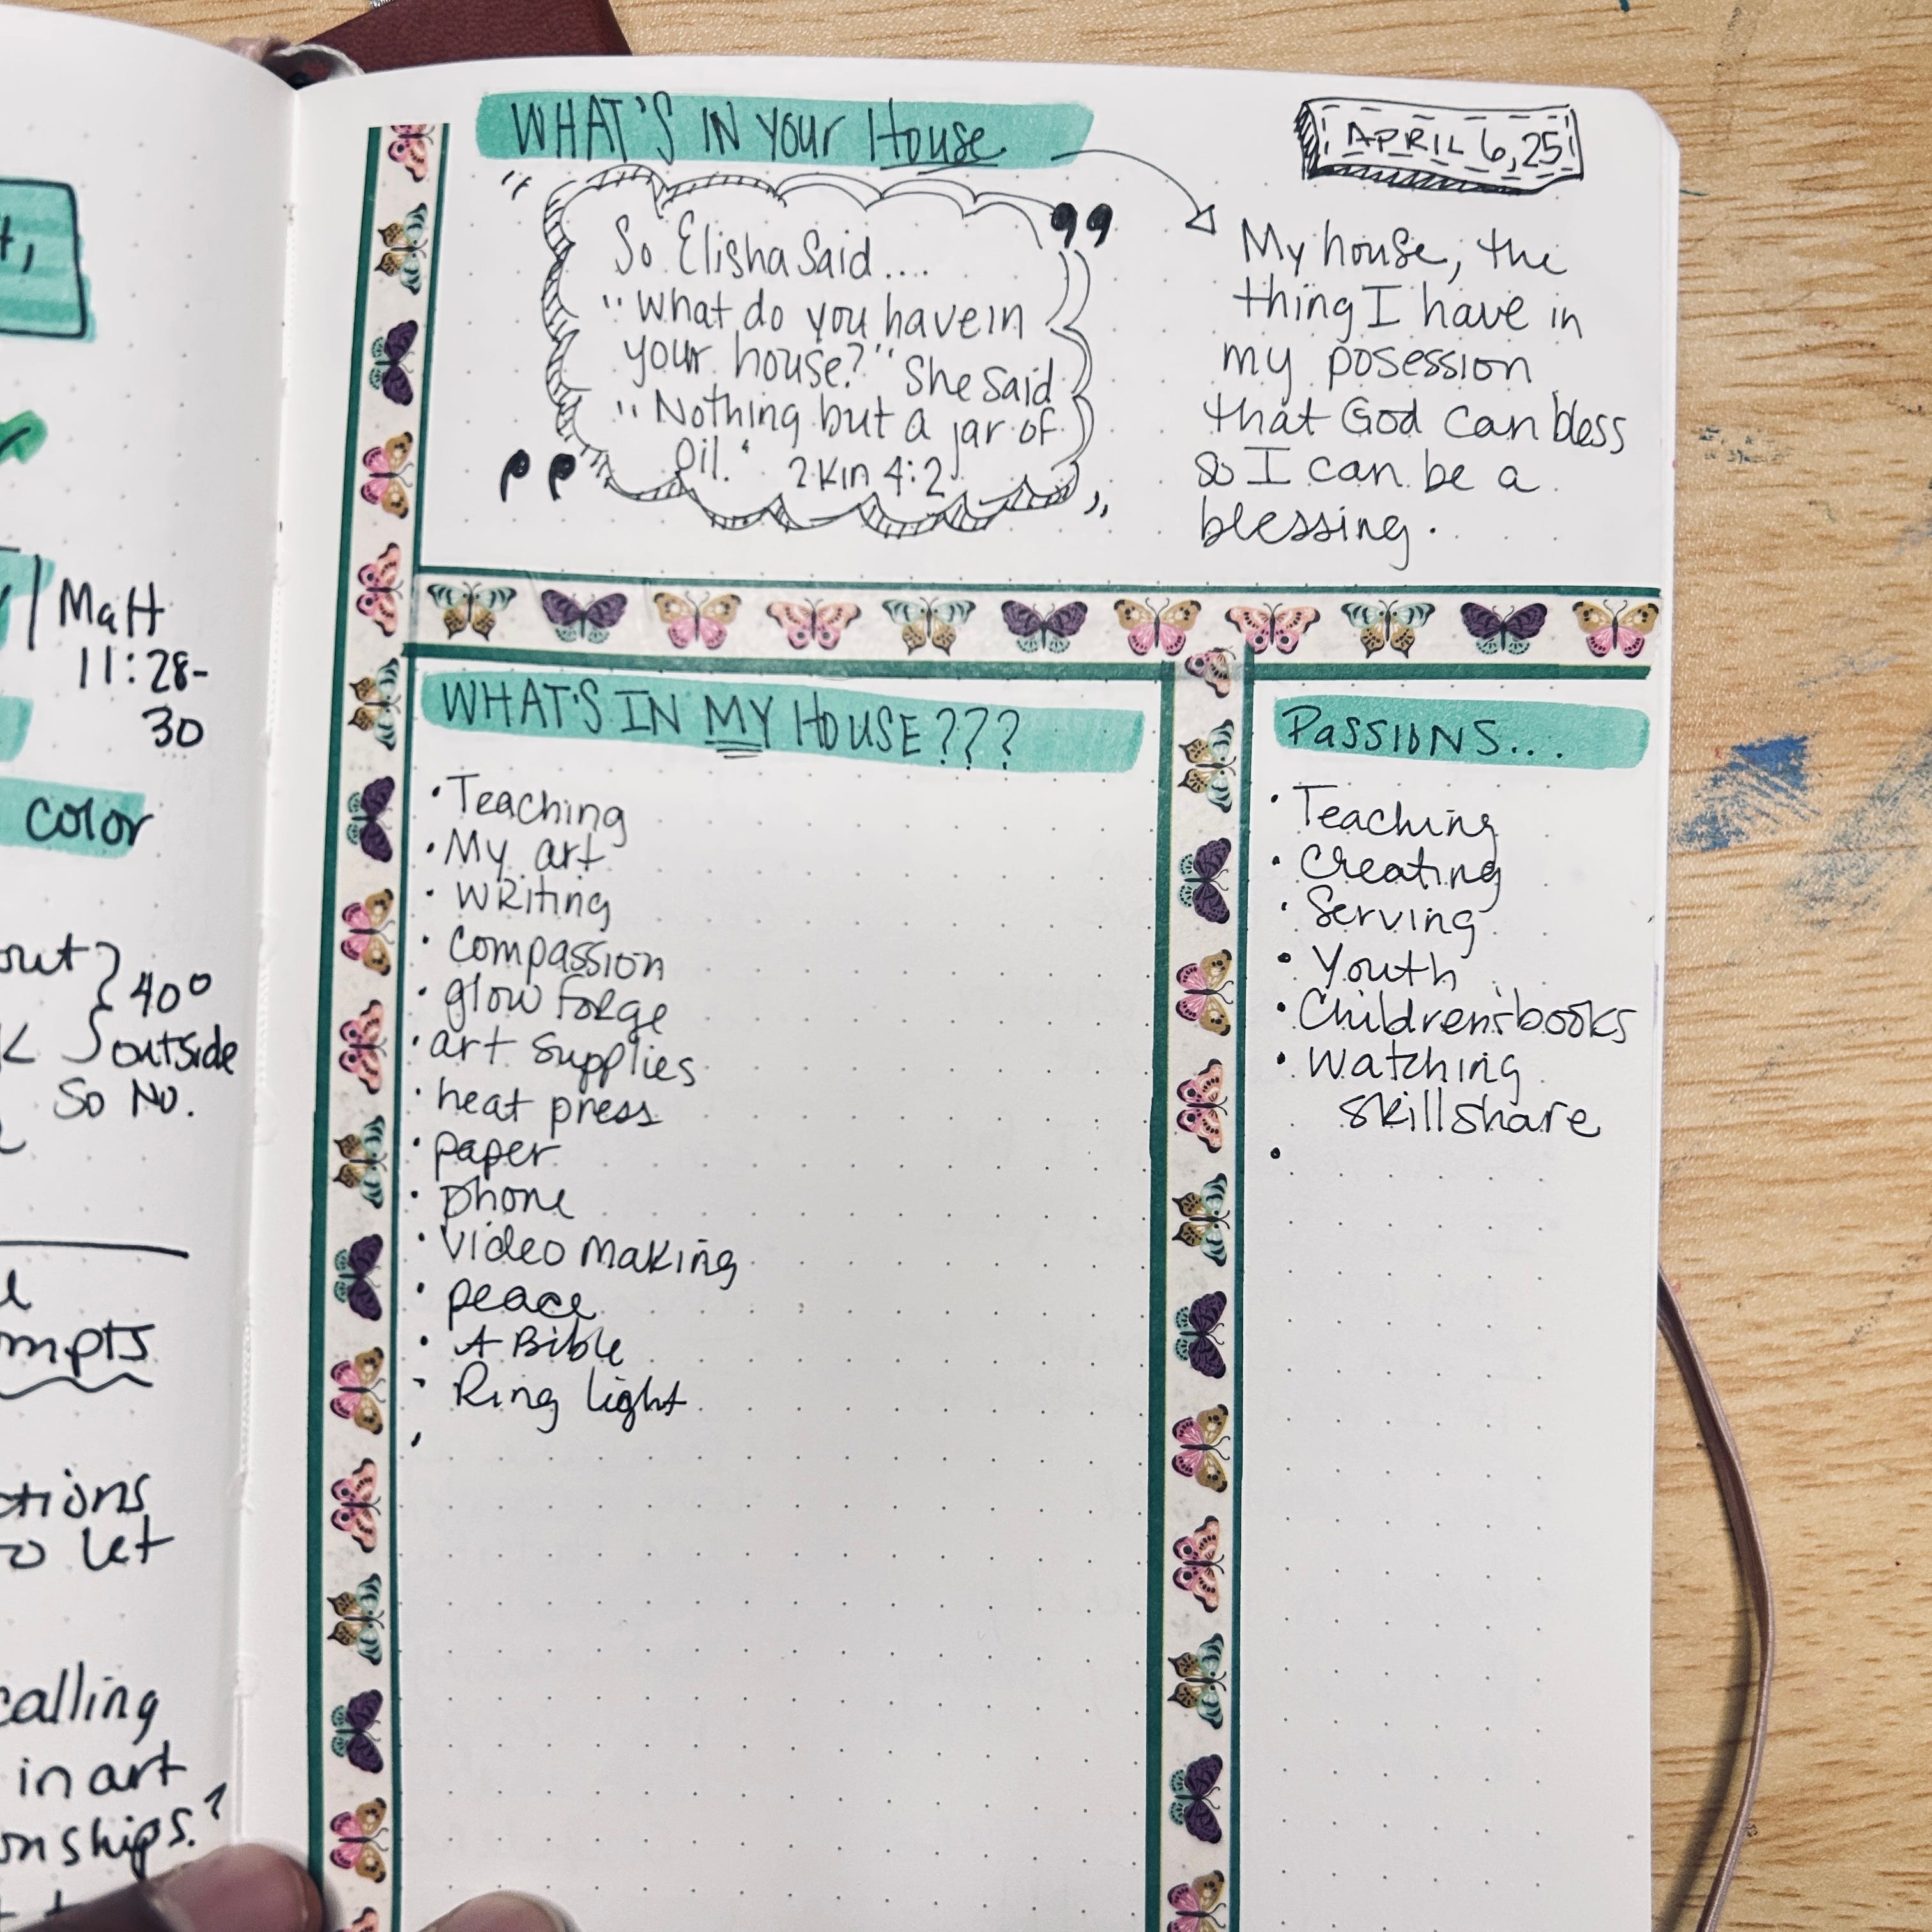 t,
Matt
11:28-
30
color
out } 40°
outside
So No.
mpts
ctions
to let
calling
in art
onships.?
WHAT'S IN Your House
APRIL 6, 25
So Elisha Said....
"What do you have in
your house?" She Said
"Nothing but a jar of
Oil." 2 Kin 4:2
My house, the
thing I have in
my posession
that God can bless
so I can be a
blessing.
WHAT'S IN MY HOUSE???
• Teaching
• My art
• writing
• compassion
• glow forge
• art supplies
• heat press
• paper
• phone
• video making
• peace
• A Bible
• Ring light
PASSIONS...
• Teaching
• Creating
• Serving
• Youth
• Children's books
• Watching
skillshare
•